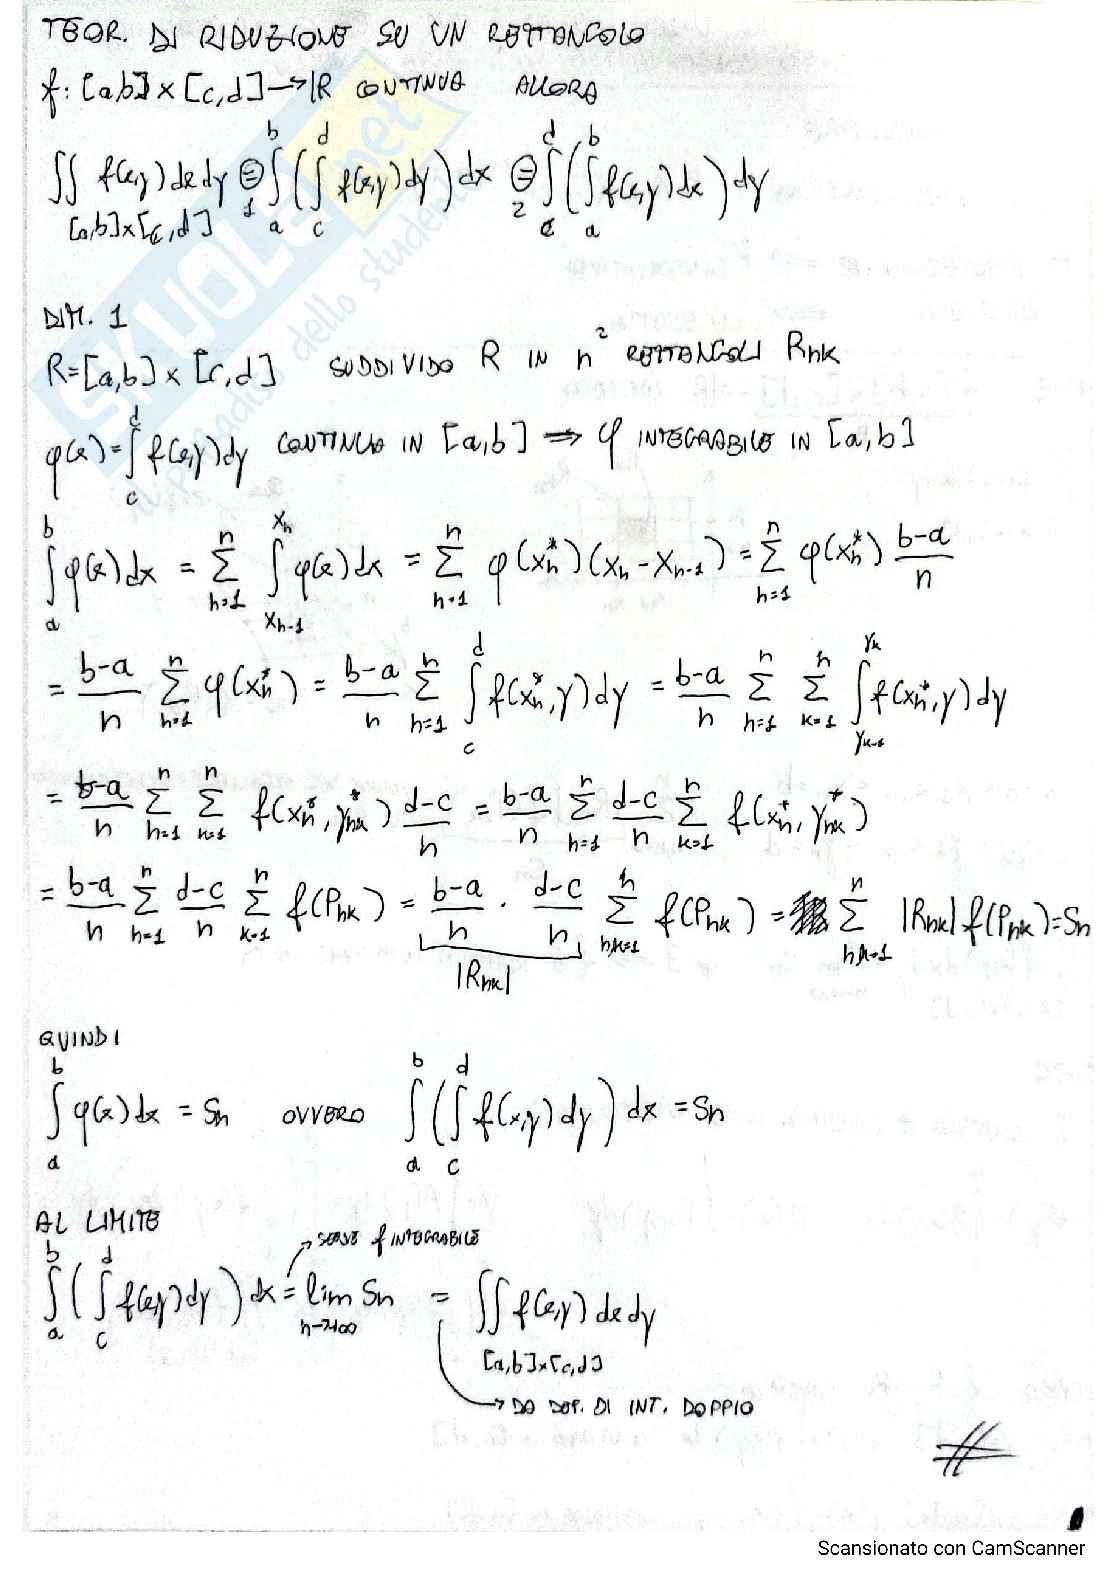 TEOR. DI RIDUZIONE SU UN RETTANGOLO
f: [a,b] × [c,d] → ℝ CONTINUA ALLORA
∬_{[a,b]×[c,d]} f(x,y) dx dy =₁ ∫_a^b (∫_c^d f(x,y) dy) dx =₂ ∫_c^d (∫_a^b f(x,y) dx) dy
DIM. 1
R = [a,b] × [c,d] SUDDIVIDO R IN n² RETTANGOLI Rhk
φ(x) = ∫_c^d f(x,y) dy CONTINUA IN [a,b] ⇒ φ INTEGRABILE IN [a,b]
∫_a^b φ(x) dx = Σ_{h=1}^n ∫_{x_{h-1}}^{x_h} φ(x) dx = Σ_{h=1}^n φ(x_h*)(x_h - x_{h-1}) = Σ_{h=1}^n φ(x_h*) (b-a)/n
= (b-a)/n Σ_{h=1}^n φ(x_h*) = (b-a)/n Σ_{h=1}^n ∫_c^d f(x_h*, y) dy = (b-a)/n Σ_{h=1}^n Σ_{k=1}^n ∫_{y_{k-1}}^{y_k} f(x_h*, y) dy
= (b-a)/n Σ_{h=1}^n Σ_{k=1}^n f(x_h*, y_hk*) (d-c)/n = (b-a)/n Σ_{h=1}^n (d-c)/n Σ_{k=1}^n f(x_h*, y_hk*)
= (b-a)/n Σ_{h=1}^n (d-c)/n Σ_{k=1}^n f(P_hk) = (b-a)/n · (d-c)/n Σ_{h,k=1}^n f(P_hk) = Σ_{h,k=1}^n |R_hk| f(P_hk) = Sn
|R_hk|
QUINDI
∫_a^b φ(x) dx = Sn OVVERO ∫_a^b (∫_c^d f(x,y) dy) dx = Sn
AL LIMITE
→ SERVE f INTEGRABILE
∫_a^b (∫_c^d f(x,y) dy) dx = lim_{n→+∞} Sn = ∬_{[a,b]×[c,d]} f(x,y) dx dy
→ DA DEF. DI INT. DOPPIO
SKUOLA.net
il paradiso dello studente
Scansionato con CamScanner